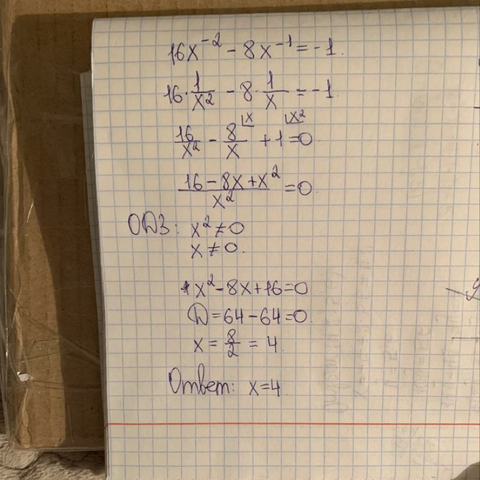 16x⁻² - 8x⁻¹ = -1.
16 · 1/x² - 8 · 1/x = -1
16/x² - 8/x |x + 1 |x² = 0
(16 - 8x + x²)/x² = 0
ОДЗ: x² ≠ 0
x ≠ 0.
x² - 8x + 16 = 0
D = 64 - 64 = 0
x = 8/2 = 4
Ответ: x = 4